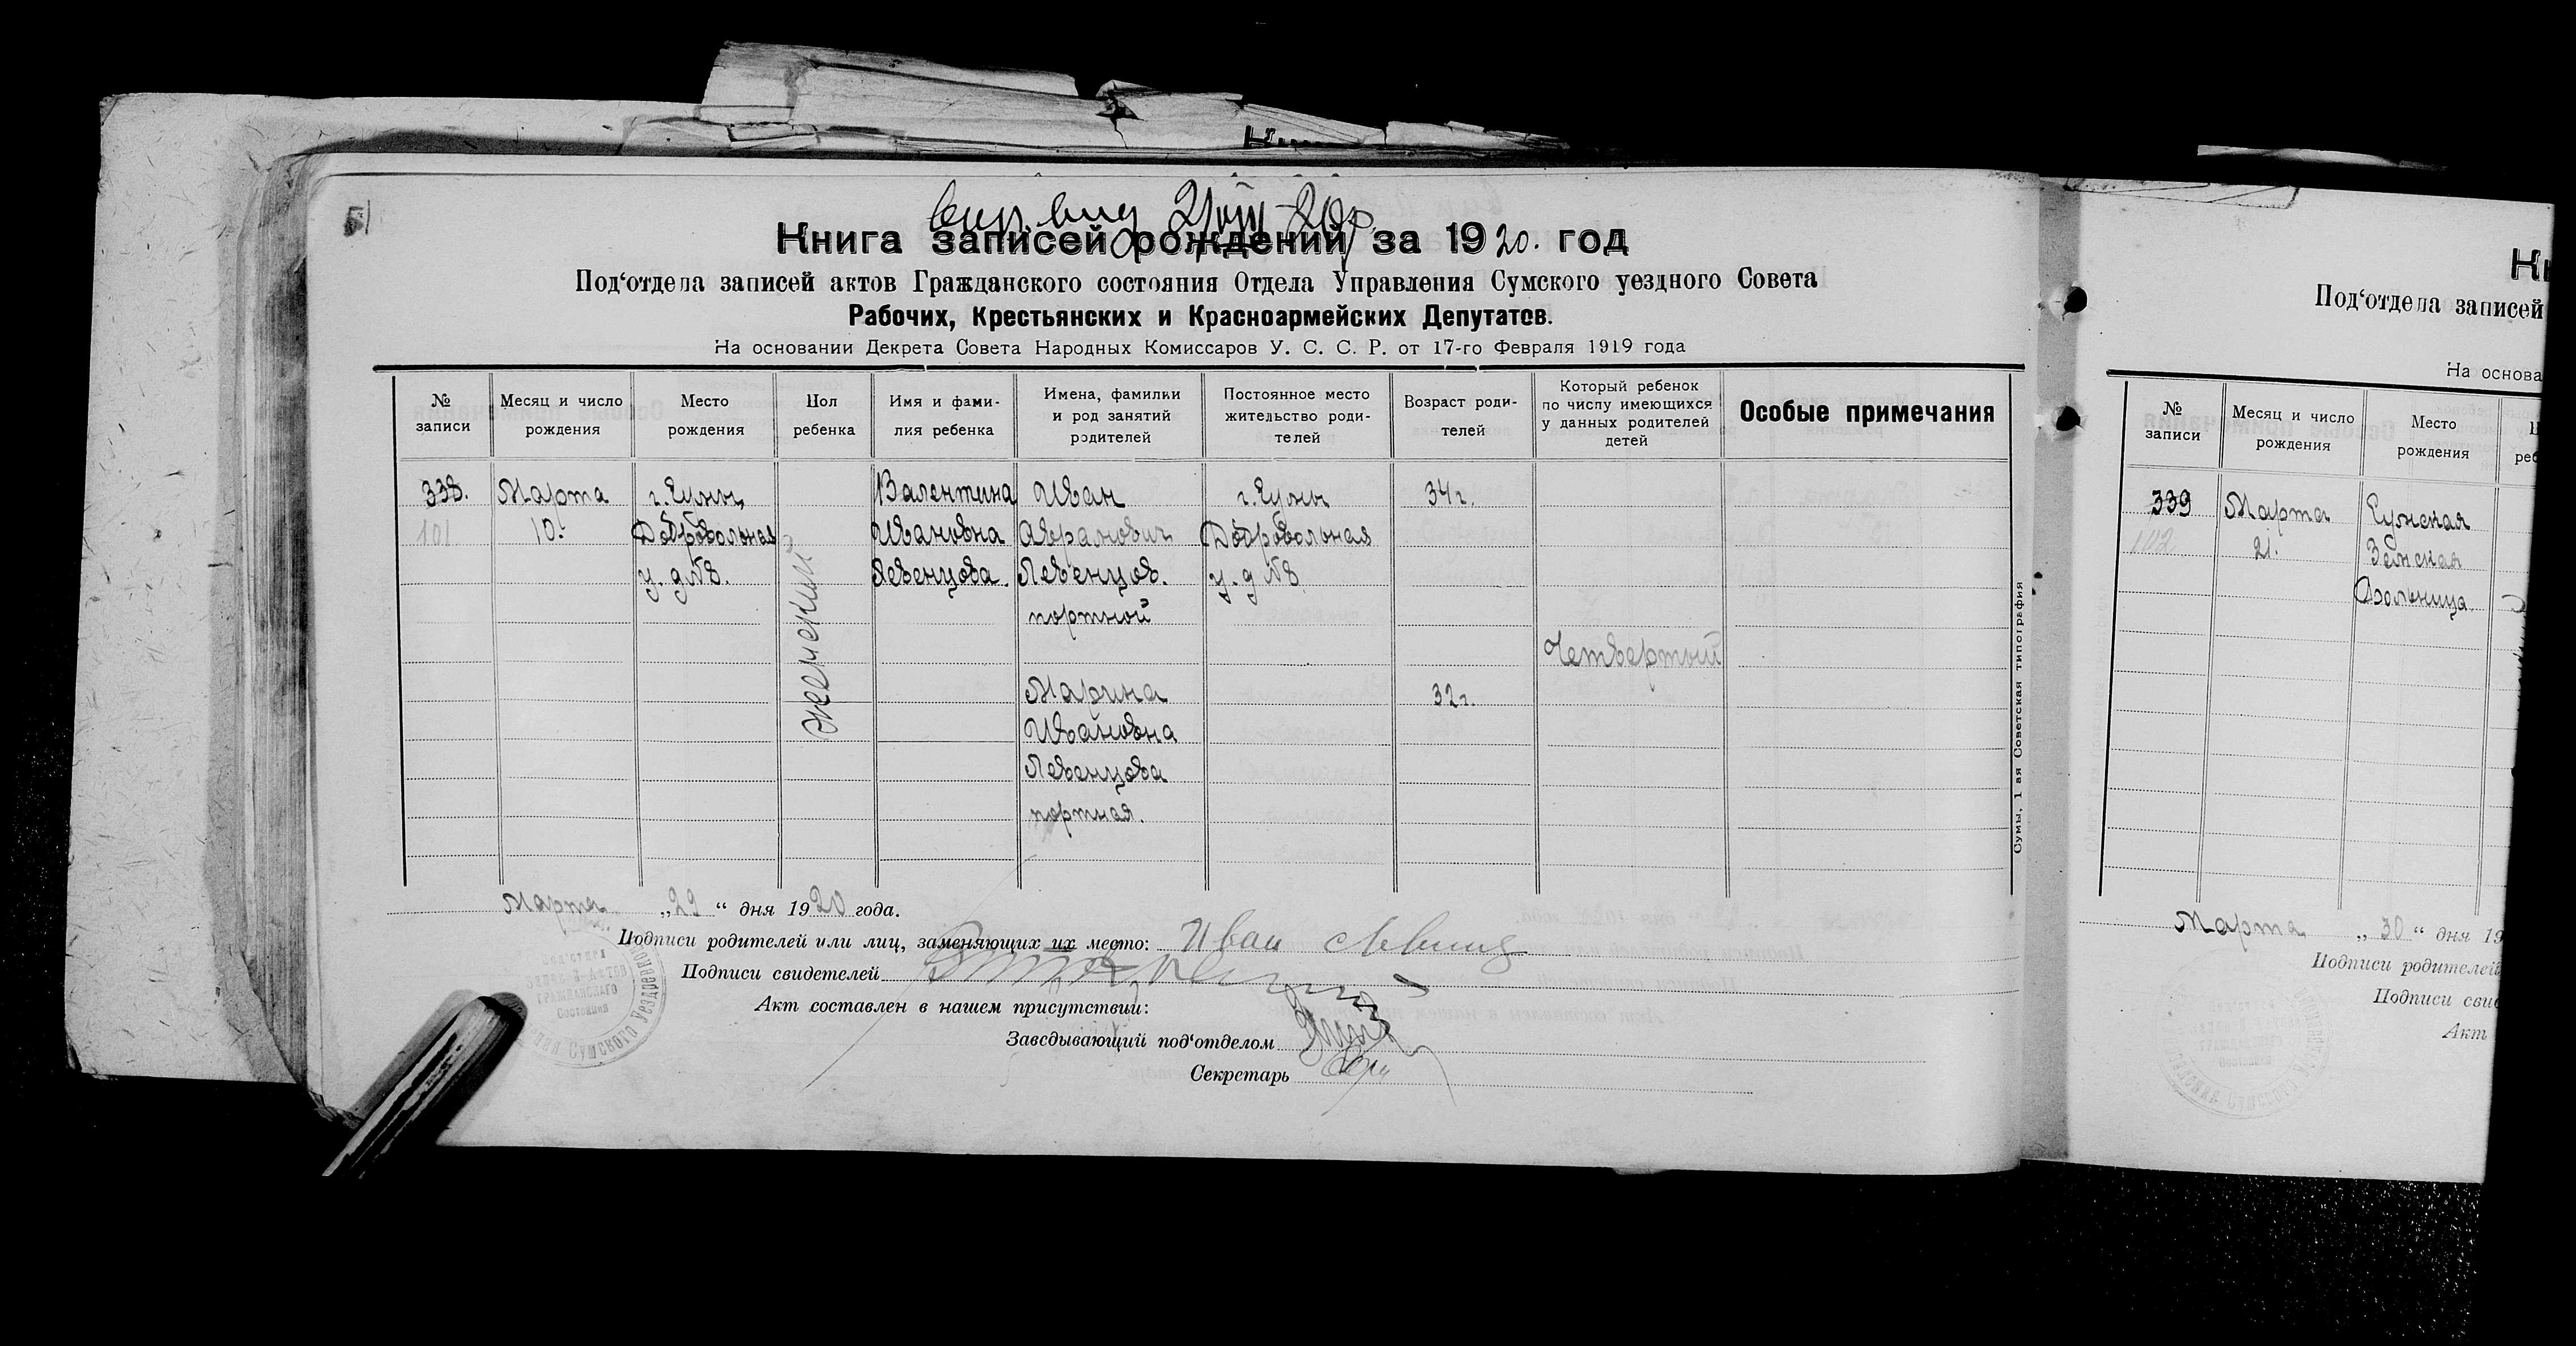 51
Книга записей рождений за 1920. год
Под‘отдела записей актов Гражданского состояния Отдела Управления Сумского уездного Совета
Рабочих, Крестьянских и Красноармейских Депутатов.
На основании Декрета Совета Народных Комиссаров У. С. С. Р. от 17-го Февраля 1919 года
№ записи
Месяц и число рождения
Место рождения
Пол ребенка
Имя и фами-
лия ребенка
Имена, фамилки
и род занятий
родителей
Постоянное место
жительство роди-
телей
Возраст роди-
телей
Который ребенок
по числу имеющихся
у данных родителей
детей
Особые примечания
338.
101
Марта
10.
г. Сумы,
Добровольная
у. д № 8.
женский
Валентина
Ивановна
Левенцова.
Иван
Аврамович
Левенцов.
портной
Марина
Ивановна
Левенцова
портная.
г. Сумы
Добровольная
у. д № 8
34 г.
32 г.
Четвертый
Марта „29“ дня 1920 года.
Подписи родителей или лиц, заменяющих их место: Иван
Подписи свидетелей
Акт составлен в нашем присутствии:
Заведывающий под‘отделом
Секретарь
Сумы, 1 ая Советская типография
Кн
Под‘отдела записей
На основа
№ записи
Месяц и число рождения
Место рождения
339
102
Марта
21.
Сумская
Земская
Больница
Марта „30“ дня 19
Подписи родителей
Подписи свид
Акт